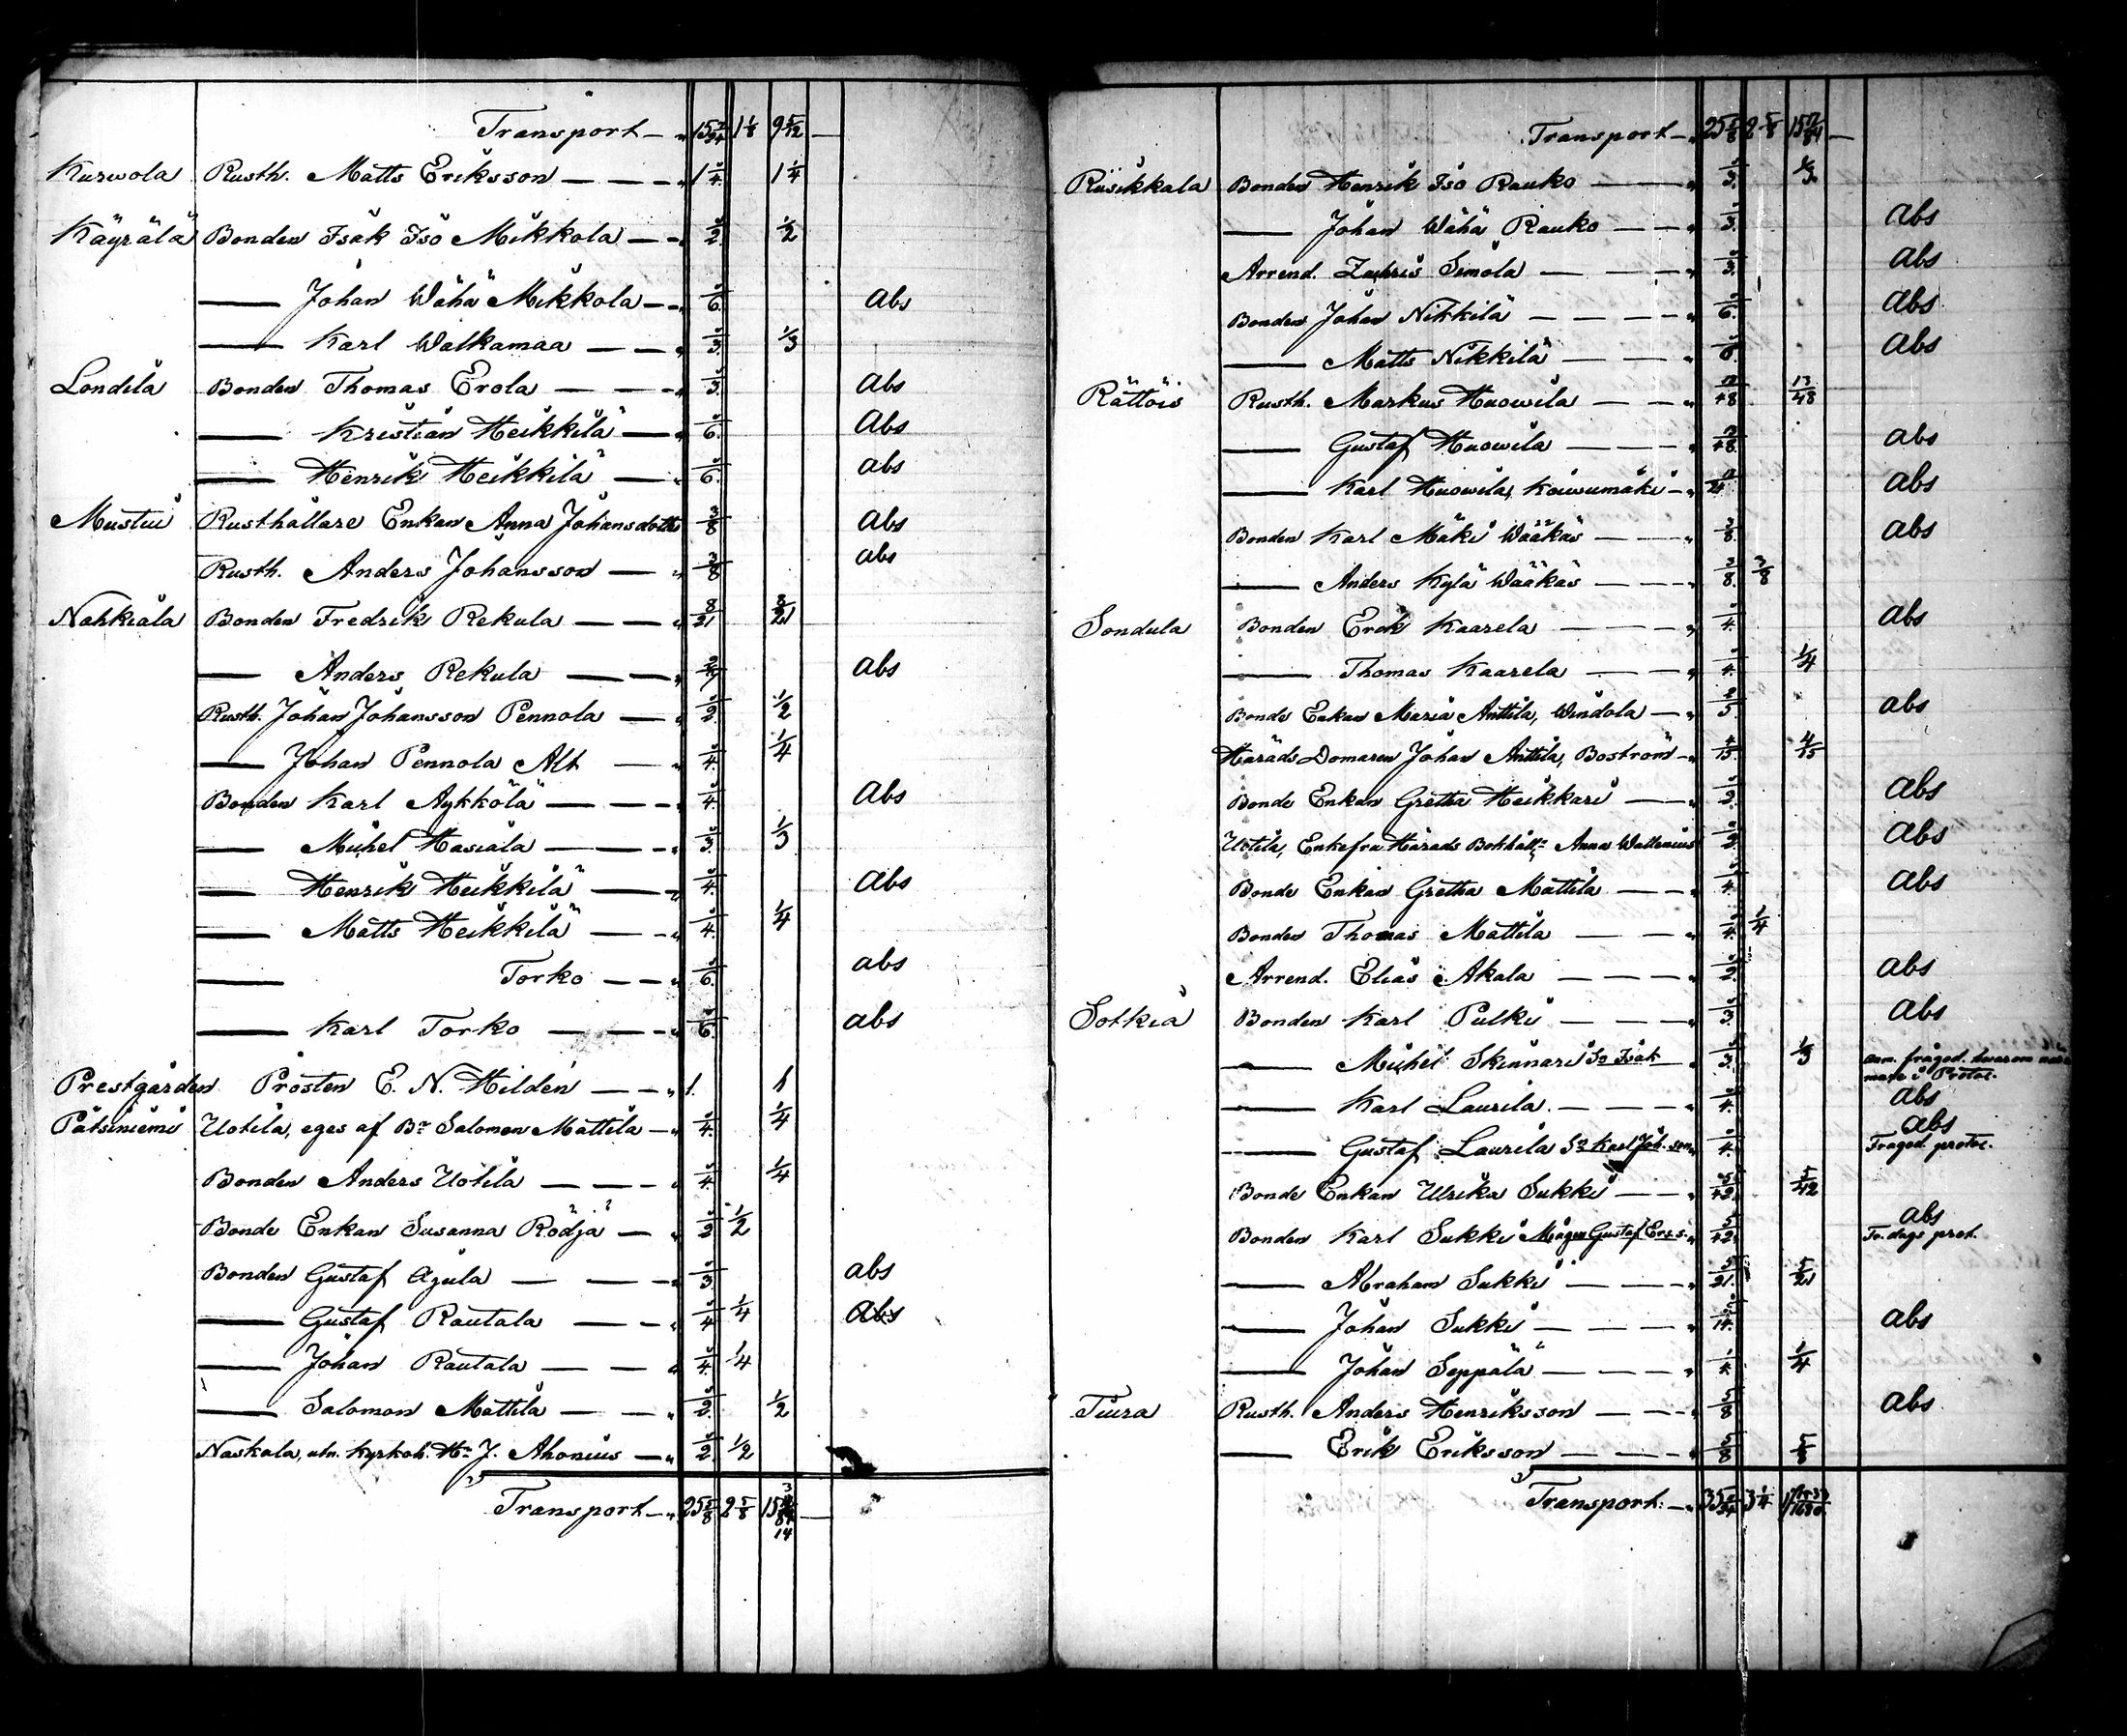 Transport — " 15 7/24 1 1/8 9 5/12 —
Kurwola Rusth. Matts Eriksson — — — " 1 1/4 1 1/4
Käyrälä Bonden Isak Iso Mikkola — — " 1/2 1/2
—— Johan Wähä Mikkola — " 1/6 abs
—— Karl Walkamaa — — " 1/3 1/3
Londila Bonden Thomas Erola — — — " 1/3 abs
—— Kristian Heikkilä — " 1/6 abs
—— Henrik Heikkilä — " 1/6 abs
Mustui Rusthållare Enkan Anna Johansdotter 3/8 abs
Rusth. Anders Johansson — " 3/8 abs
Nahkiala Bonden Fredrik Rekula — — " 8/21 8/21
—— Anders Rekula — — " 2/7 abs
Rusth. Johan Johansson Pennola — " 1/2 1/2
—— Johan Pennola Alt — " 1/4 1/4
Bonden Karl Aykkölä — — — " 1/4 abs
—— Michel Hasiala — — — " 1/3 1/3
—— Henrik Heikkilä — — " 1/4 abs
—— Matts Heikkilä — — " 1/4 1/4
—— Torko — — " 1/6 abs
—— Karl Torko — — — " 1/6 abs
Prestgården Prosten E. N. Hildén — — " 1. 1
Pätsiniemi Uotila, eges af Bn Salomon Mattila — " 1/4 1/4
Bonden Anders Uotila — — — " 1/4 1/4
Bonde Enkan Susanna Rödjä — " 1/2 1/2
Bonden Gustaf Äjula — — — " 1/3 abs
—— Gustaf Rautala — — " 1/4 1/4 abs
—— Johan Rautala — — " 1/4 1/4
—— Salomon Mattila — — " 1/2 1/2
Naskala, utn. Kyrkoh. Hr J. Ahonius — " 1/2 1/2
Transport — " 25 5/8 2 5/8 15 —
Transport — " 25 5/8 2 5/8 15 17/84 —
Rusikkala Bonden Henrik Iso Rauko — — " 1/3 1/3
—— Johan Wähä Rauko — — " 1/3 abs
Arrend. Zachris Simola — — — " 1/3 abs
Bonden Johan Nikkilä — — — — " 1/6 abs
—— Matts Nikkilä — — — " 1/6 abs
Rättöis Rusth. Markus Huowila — — " 13/48 13/48
—— Gustaf Huowila — — — " 13/48 abs
—— Karl Huowila, Koiwumäki — " abs
Bonden Karl Mäki Wääkäs — — " 3/8 abs
—— Anders Kylä Wääkäs — — — " 3/8 3/8
Sondula Bonden Erik Kaarela — — — " 1/4 abs
—— Thomas Kaarela — — — " 1/4 1/4
Bonde Enkan Maria Anttila, Windola — " abs
Härads Domaren Johan Anttila, Boström — " 4/15 4/15
Bonde Enkan Gretha Heikkari — — " abs
Uotila, Enkefru Härads Bokhålln Anna Wallenius abs
Bonde Enkan Gretha Mattila — — " 1/4 abs
Bonden Thomas Mattila — — " 1/4 1/4
Arrend. Elias Akala — — — " 1/2 abs
Sotkia Bonden Karl Pulki — — — " 1/3 abs
—— Michel Skinnari Sn Isak — " 1/3 1/3 anm. frågod. hwarom
mare i Protoc.
—— Karl Laurila — — — " 1/4 abs
—— Gustaf Laurila Sn Karl Joh.son " 1/4 abs
Fragod. protoc.
Bonde Enkan Ulrika Sukki — — " 5/42 5/42
Bonden Karl Sukki Mågen Gustaf Erss. " 5/42 abs
Fr. dags prot.
—— Abraham Sukki — — — " 5/21 5/21
—— Johan Sukki — — — — " abs
—— Johan Seppälä — — — — " 1/4 1/4
Tuira Rusth. Anders Henriksson — — — " 5/8 abs
—— Erik Eriksson — — — " 5/8 5/8
Transport: — " 35 3 1/4